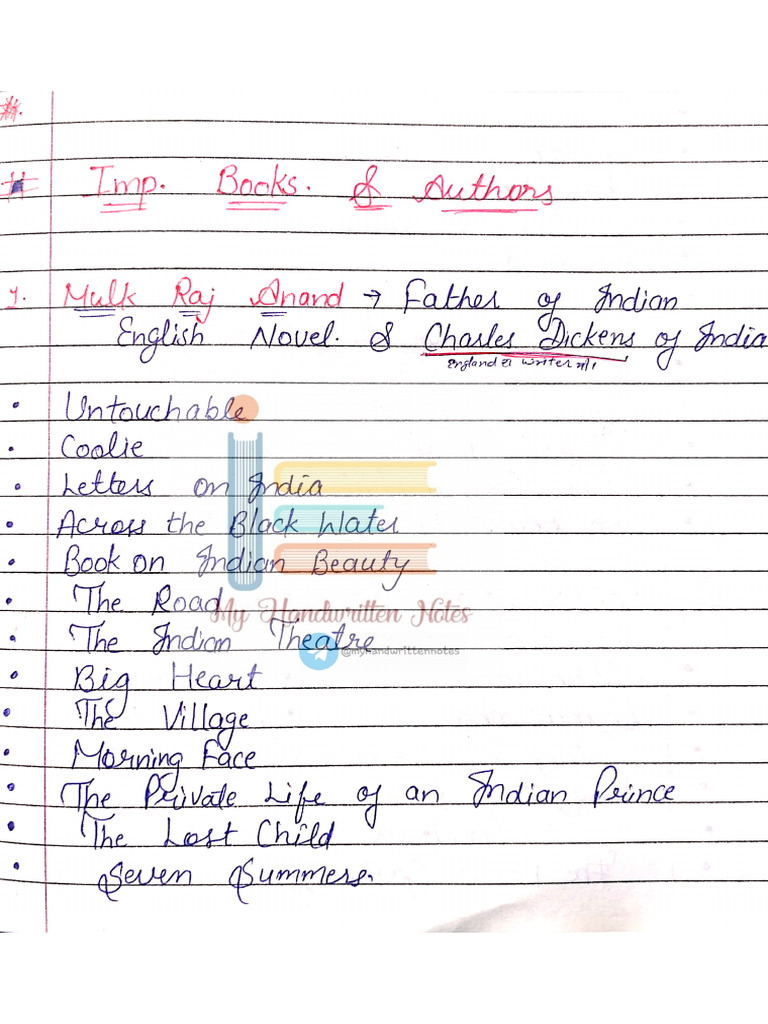 #.
# Imp. Books. & Authors
1. Mulk Raj Anand → Father of Indian
English Novel. & Charles Dickens of India
England का writer थी।
• Untouchable
• Coolie
• Letters on India
• Across the Black Water
• Book on Indian Beauty
• The Road
My Handwritten Notes
• The Indian Theatre
@myhandwrittennotes
• Big Heart
• The Village
• Morning Face
• The Private Life of an Indian Prince
• The Lost Child
• Seven Summers.